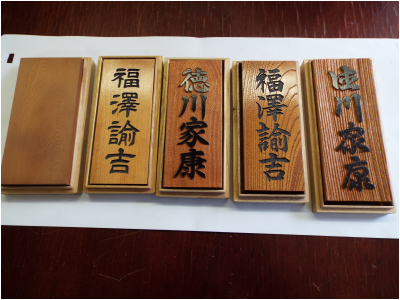 福澤諭吉
徳川家康
福澤諭吉
徳川家康